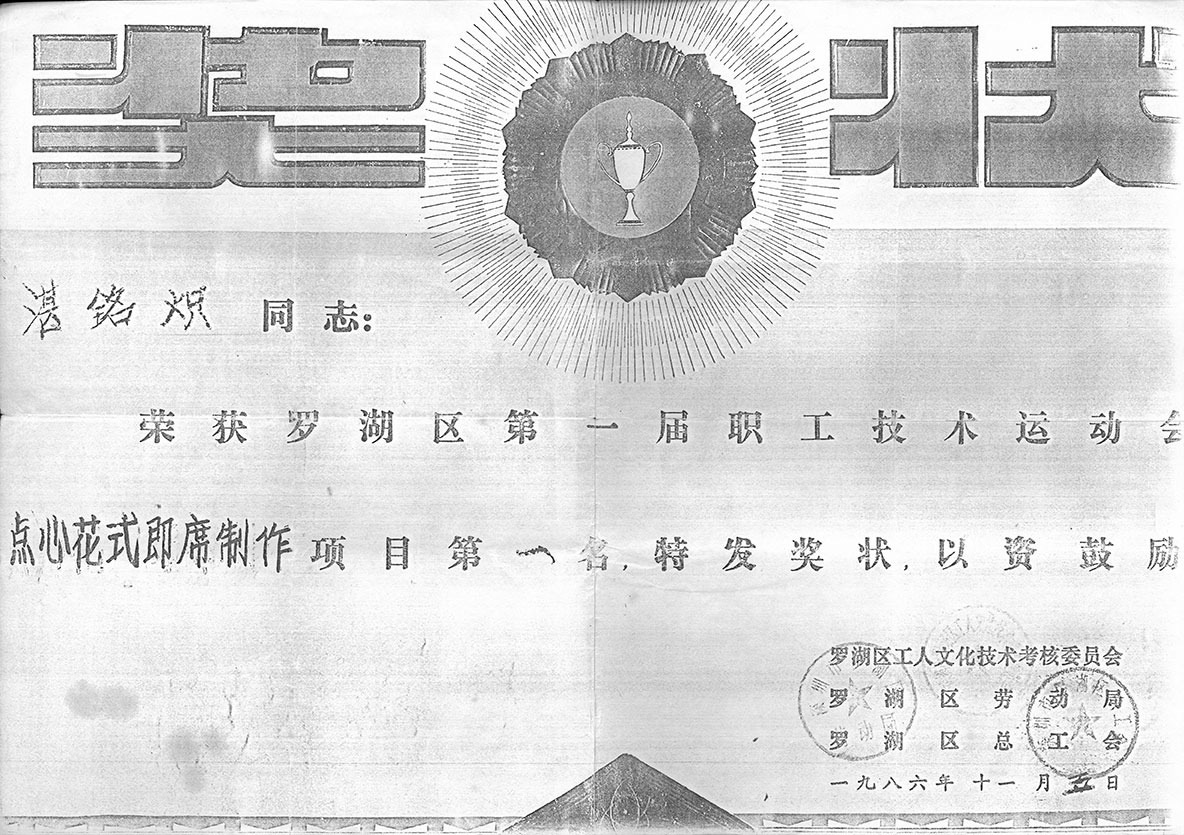 奖状
湛铭炽同志：
荣获罗湖区第一届职工技术运动会
点心花式即席制作项目第一名，特发奖状，以资鼓励
罗湖区工人文化技术考核委员会
罗湖区劳动局
罗湖区总工会
一九八六年十一月五日